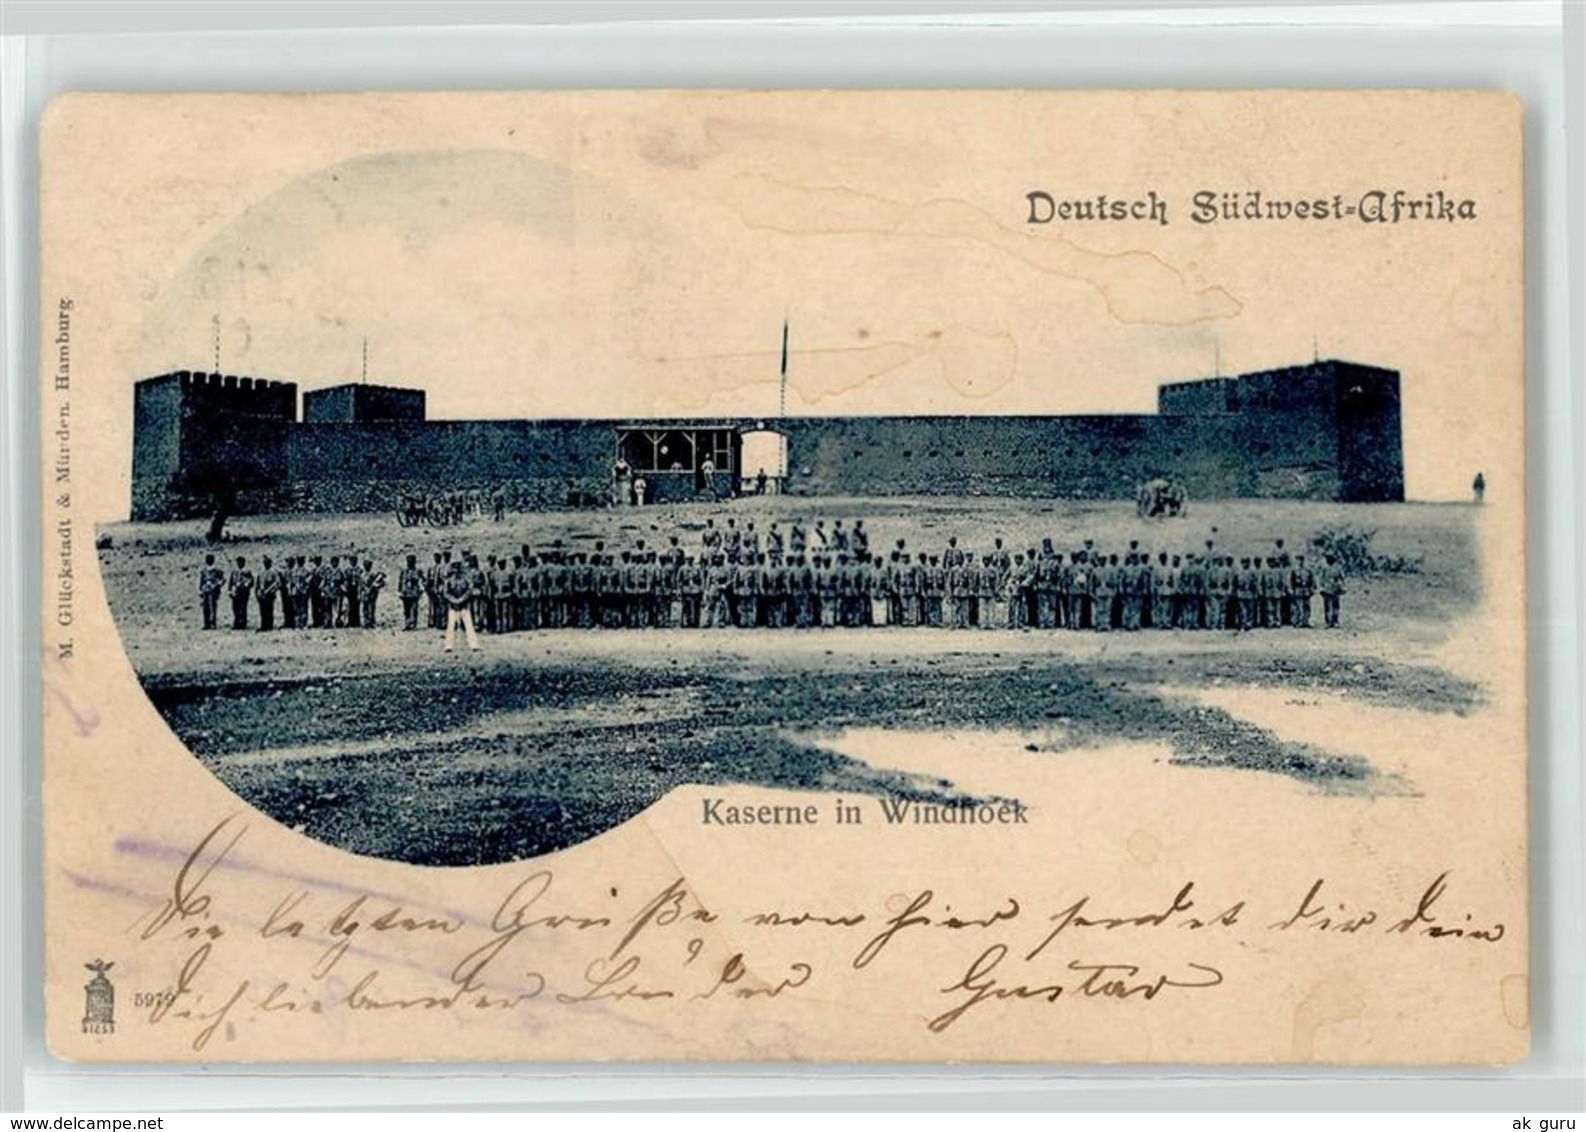 Deutsch Südwest-Afrika
M. Glückstadt & Münden. Hamburg
Kaserne in Windhoek
Die letzten Grüße von hier sendet dir dein
dich liebender Bruder Gustav
5979
www.delcampe.net
ak guru